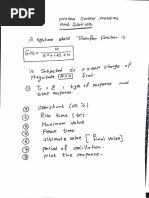 process Control Problems
And Solution
A system whose Transfer Function is
G(s) = 10
is Subjected to a step change of
Magnitude find:
① type of response and
response
② overshoot (os %)
③ Rise time (tr)
④ Maximum Value
⑤ Peak time.
⑥ ultimate value [final value]
⑦ period of oscillation.
⑧ plot the response.